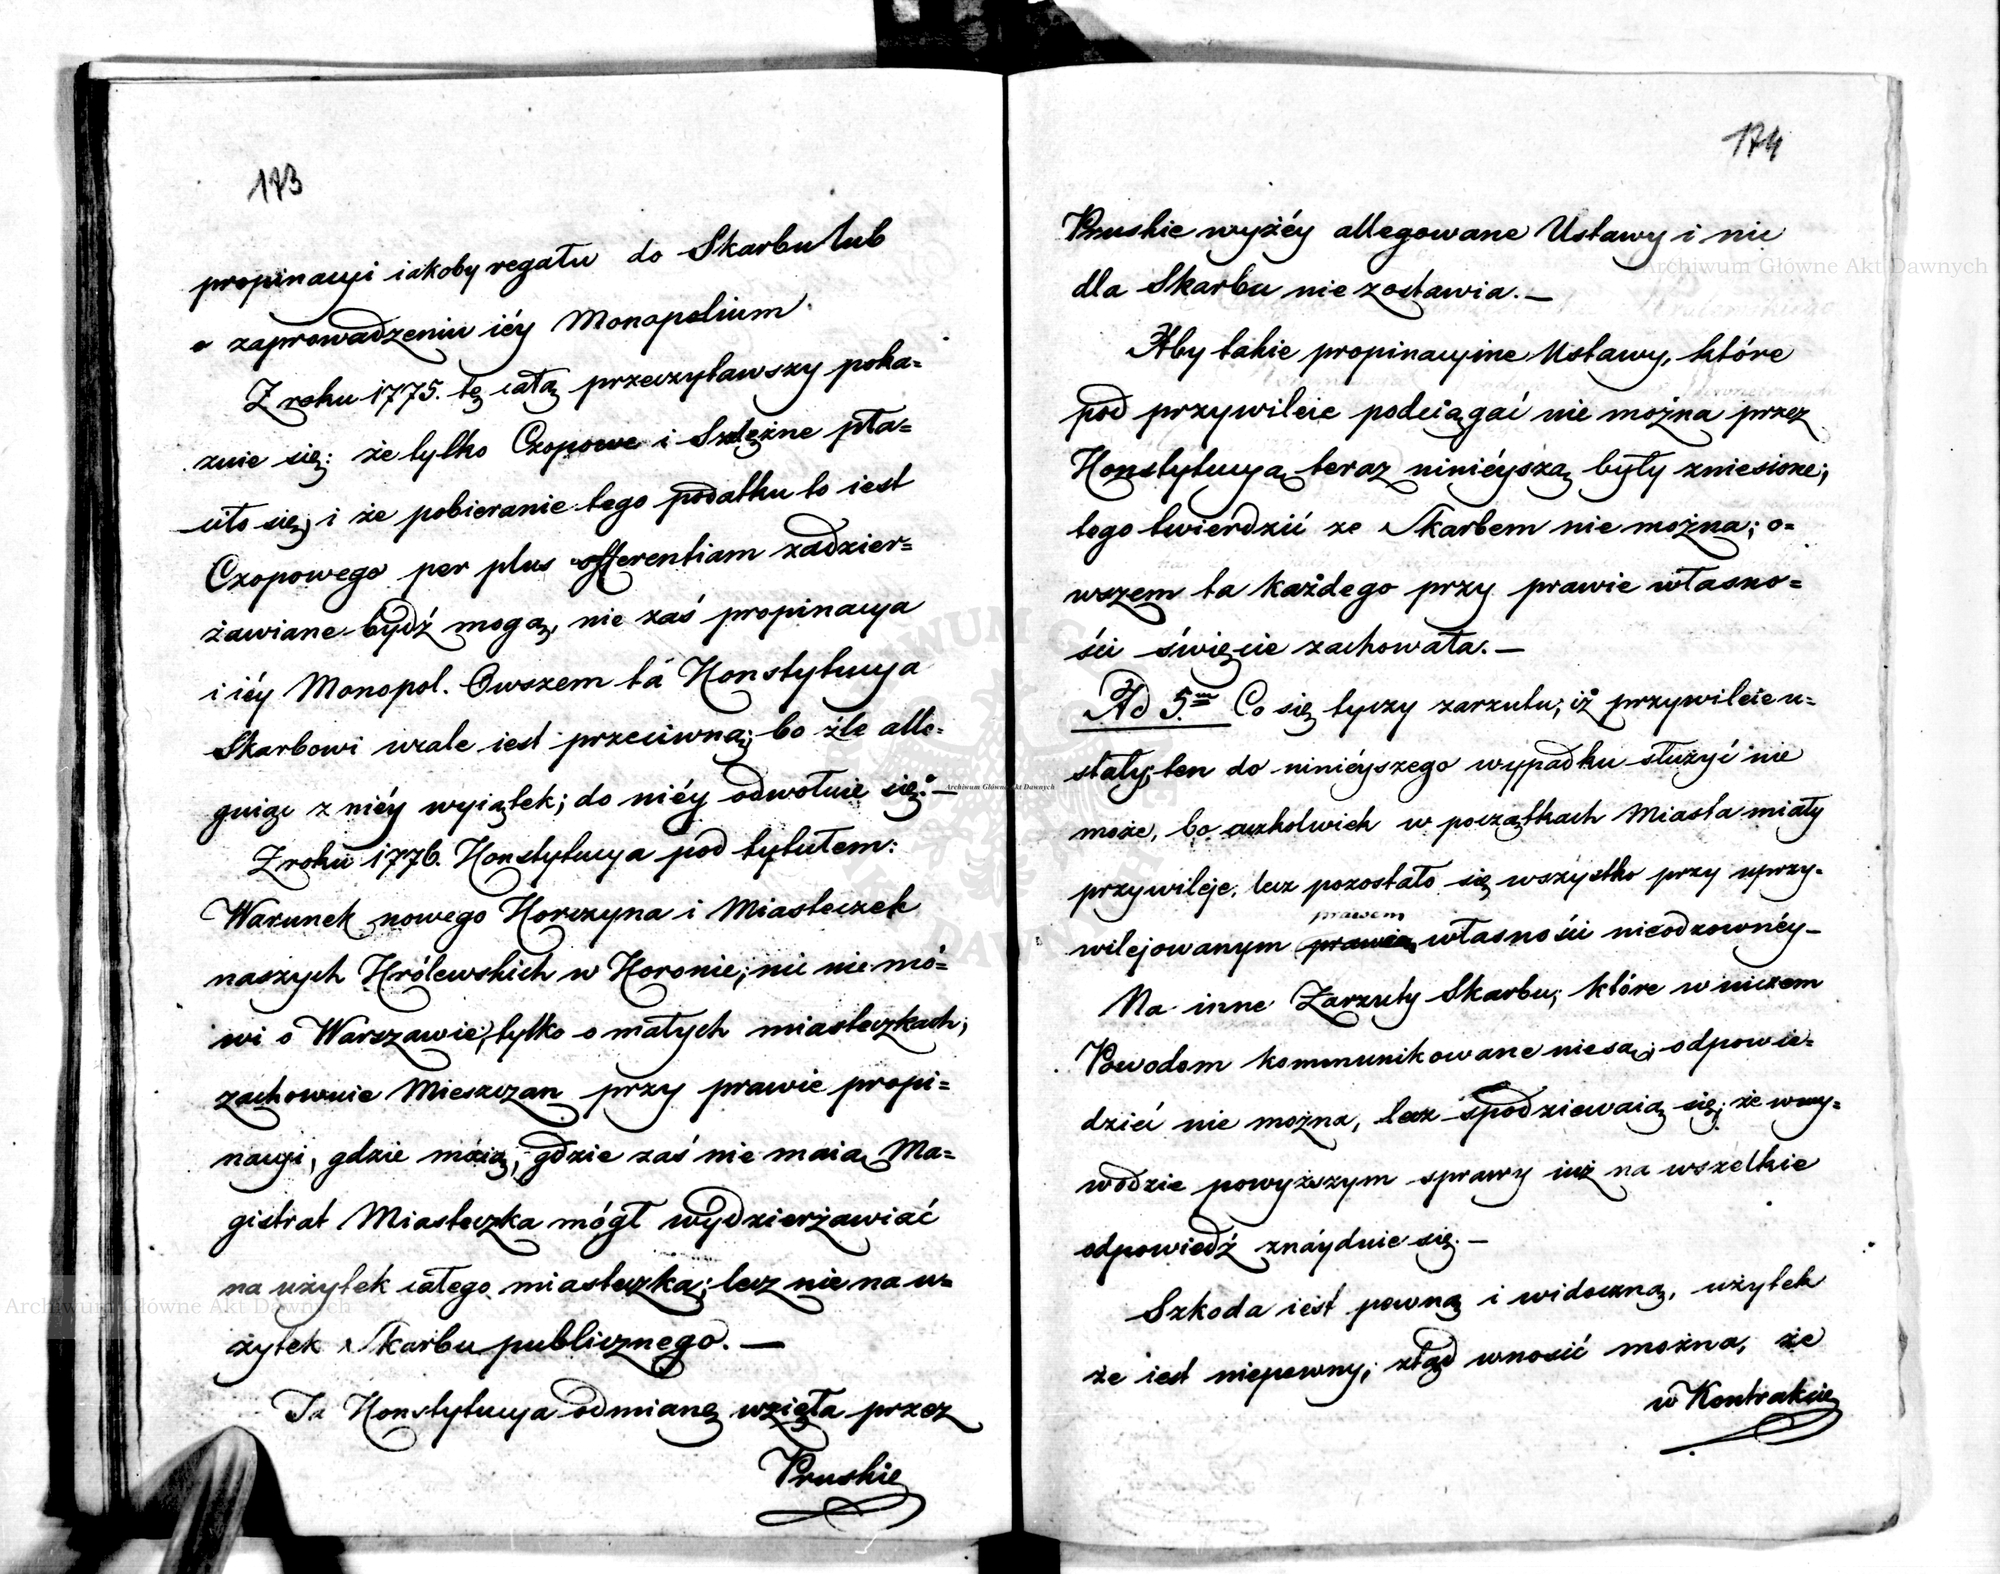 173
propinacyi iakoby regału do Skarbu lub
o zaprowadzeniu iéy Monopolium.
Z roku 1775. tę całą przeczytawszy poka=
zuie się: że tylko Czopowe i Szelężne pła=
ciło się, i że pobieranie tego podatku to iest
Czopowego per plus offerentiam zadzier=
żawiane bydź mogą, nie zaś propinacya
i iéy Monopol. Owszem ta Konstytucya
Skarbowi wcale iest przeciwną; bo źle alle=
guiąc z niéy wyiątek; do niéy odwołuie się. —
Z roku 1776. Konstytucya pod tytułem:
Warunek nowego Korczyna i Miasteczek
naszych Królewskich w Koronie; nic nie mó=
wi o Warszawie, tylko o małych miasteczkach;
zachowuie Mieszczan przy prawie propi=
nacyi, gdzie maią, gdzie zaś nie maią Ma=
gistrat Miasteczka mógł wydzierżawiać
na użytek całego miasteczka; lecz nie na u=
żytek Skarbu publicznego. —
Ta Konstytucya odmianę wzięła przez
Pruskie
174
Pruskie wyżéy allegowane Ustawy i nic
dla Skarbu nie zostawia. —
Aby takie propinacyine Ustawy, które
pod przywileie podciągać nie można przez
Konstytucyą teraz ninieyszą były zniesione;
tego twierdzić ze Skarbem nie można; o=
wszem ta każdego przy prawie własno=
ści święcie zachowała. —
Ad 5m Co się tyczy zarzutu; iż przywileie u=
stały, ten do ninieyszego wypadku służyć nie
może, bo aczkolwiek w początkach Miasta miały
przywileje, lecz pozostało się wszystko przy uprzy=
prawem
wilejowanym prawie własności nieodzownéy —
Na inne Zarzuty Skarbu, które w niczem
Powodom kommunikowane niesą, odpowie=
dzieć nie można, lecz spodziewaią się, że w wy=
wodzie powyższym sprawy iuż na wszelkie
odpowiedź znaydzie się. —
Szkoda iest pewną i widoczną, użytek
że iest niepewny; ztąd wnosić można, że
w Kontrakcie
Archiwum Główne Akt Dawnych
Archiwum Główne Akt Dawnych
Archiwum Główne Akt Dawnych